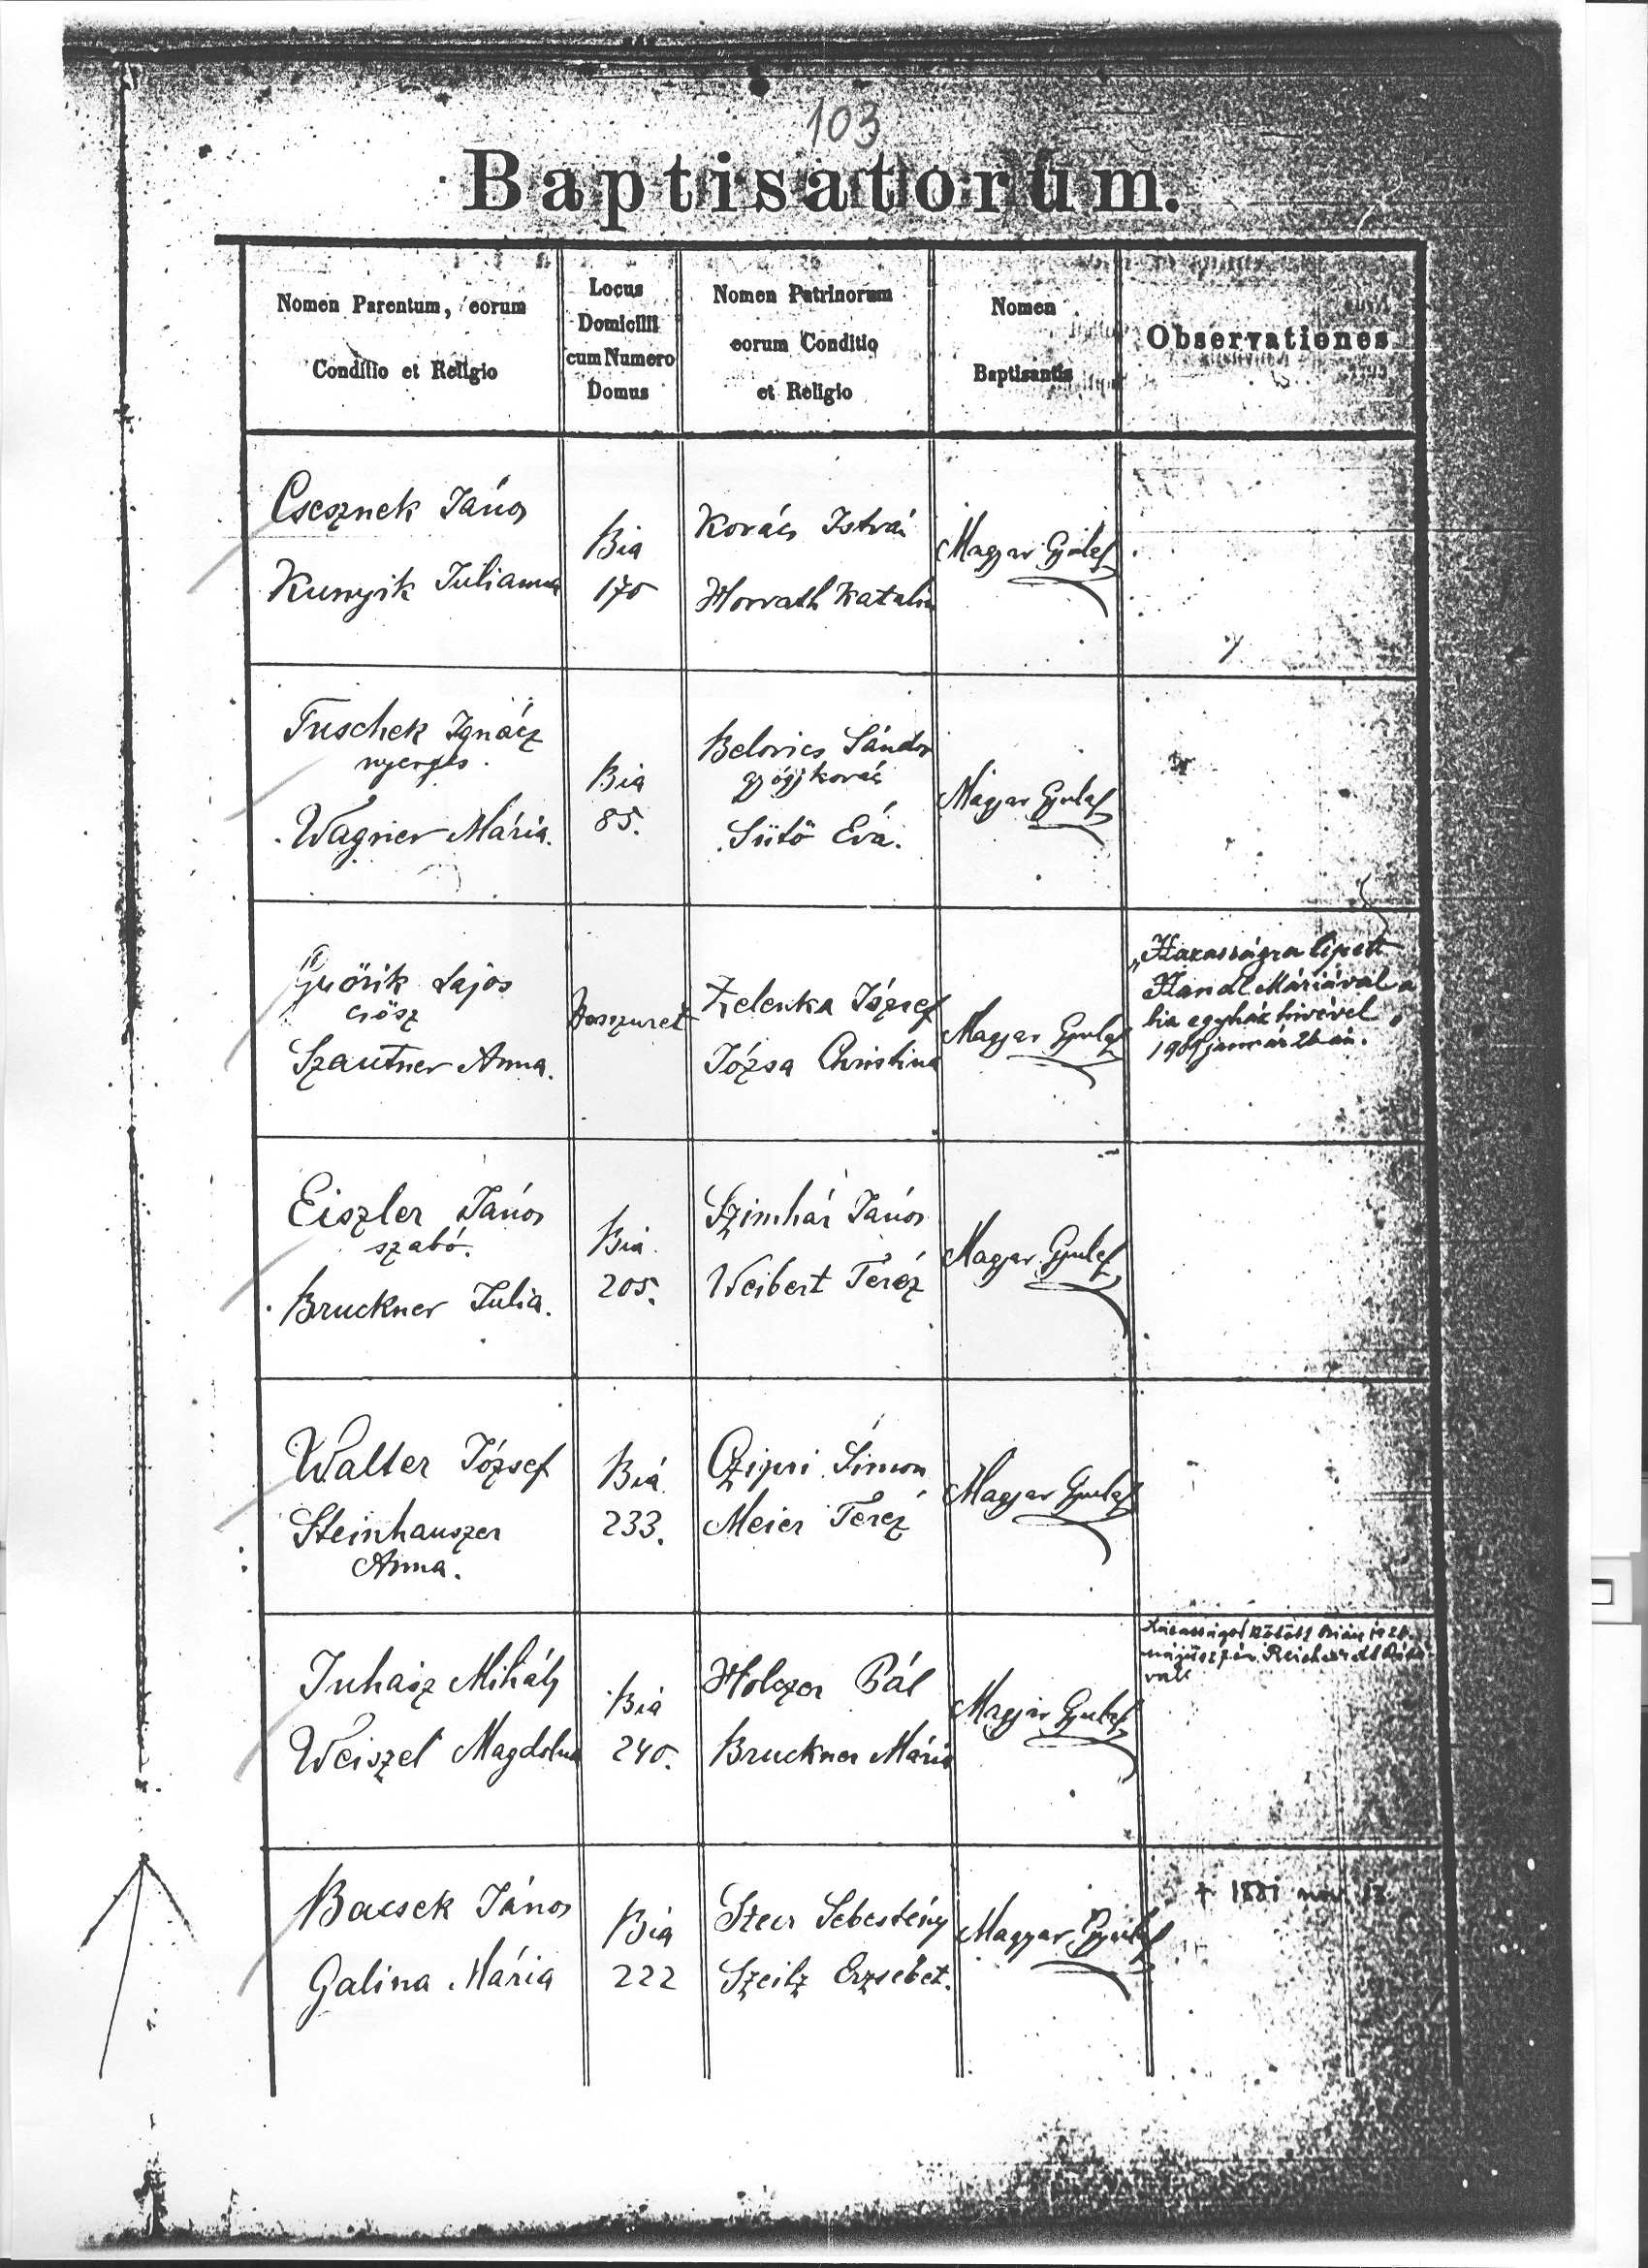 103
Baptisatorum.
Nomen Parentum, eorum
Conditio et Religio
Locus
Domicilii
cum Numero
Domus
Nomen Patrinorum
eorum Conditio
et Religio
Nomen
Baptisantis
Observationes
Csesznek János
Kunyik Julianna
Bia
170
Kovács István
Horvath Katalin
Magyar Gyula
Tuschek Ignácz
nyerges.
Wagner Mária.
Bia
85.
Belovics Sándor
Sütő Éva.
Magyar Gyula
Lajos
csősz
Szautner Anna.
Zelenka József
Józsa Christina
Magyar Gyula
Házasságra lépett
Handl Máriával a
bia egyház hívével
január 26-án.
Eiszler János
szabó.
Bruckner Julia.
Bia
205.
Szimhár János
Weibert Teréz
Magyar Gyula
Walter József
Steinhauszer
Anna.
Bia
233.
Czipri Simon
Meier Teréz
Magyar Gyula
Juhász Mihály
Weiszel Magdolna
Bia
240.
Holczer Pál
Bruckner Mária
Magyar Gyula
Házasságot kötött Bián
Reichardt
val
Bacsek János
Galina Mária
Bia
222
Sebestény
Szeilz Erzsébet.
Magyar Gyula
† 1881 nov 13